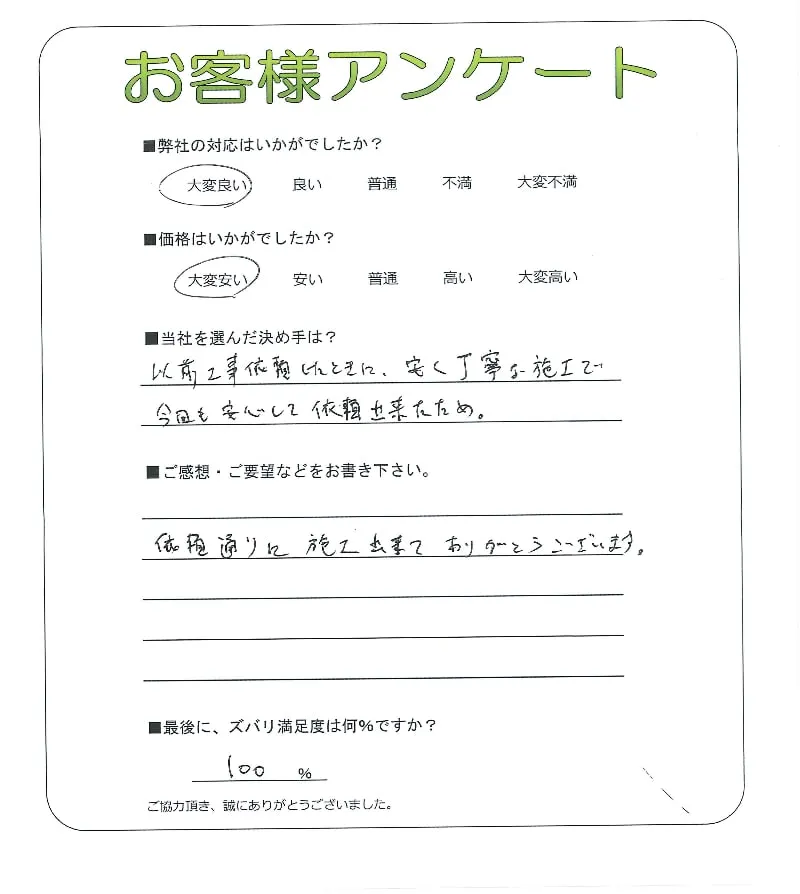 お客様アンケート
■弊社の対応はいかがでしたか？
大変良い 良い 普通 不満 大変不満
■価格はいかがでしたか？
大変安い 安い 普通 高い 大変高い
■当社を選んだ決め手は？
以前工事依頼したときに、安く丁寧な施工で
今回も安心して依頼出来たため。
■ご感想・ご要望などをお書き下さい。
依頼通りに施工出来てありがとうございます。
■最後に、ズバリ満足度は何%ですか？
100 %
ご協力頂き、誠にありがとうございました。